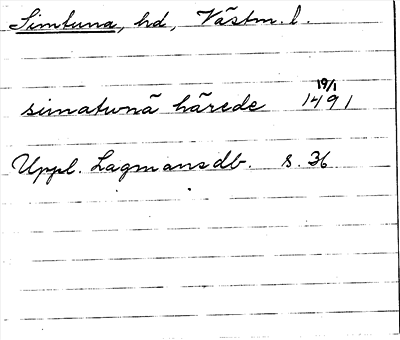 Simtuna, hd, Västm. l.
19/1
simatunā hārede 1491
Uppl. Lagmansdb. s. 36.